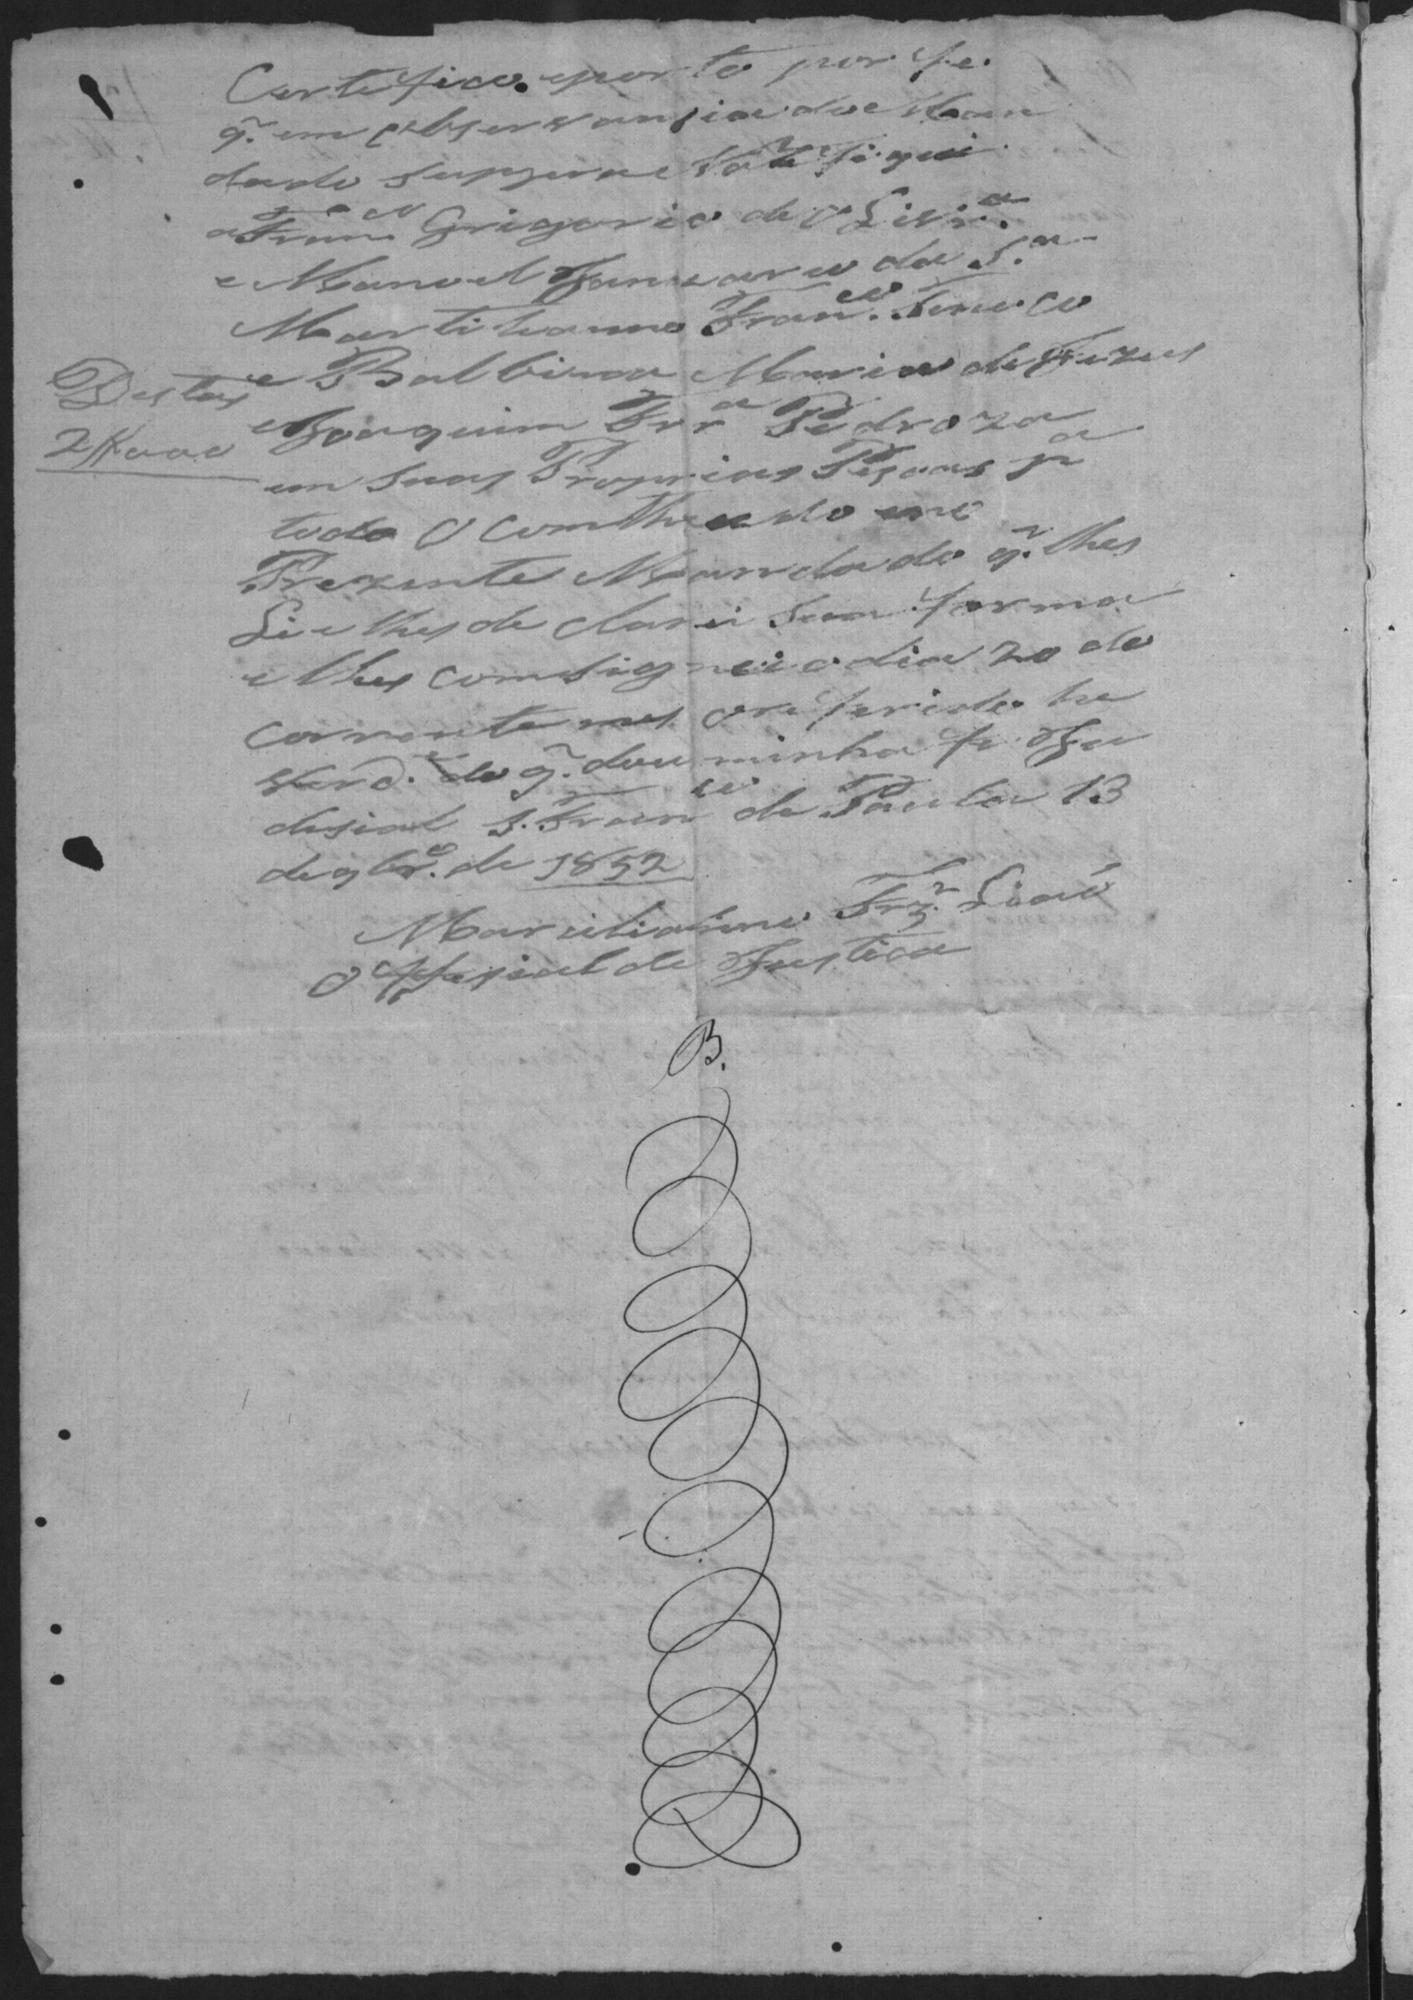 Certefico. eporto por fe.
q.^e em observansia doe Man
dado suppra e Notefiquei
a Fran.^co Grigorio de OLivr.^a
e Manoel Januario da S.^a
Martilianno Fran.^co
e Balbina Maria de Jezus
e Joaquim Frr^a Pedroza
em suas Proprias Pesoas p^a
todo O Comtheudo eno
Prezente Mandado q.^e lhes
Li e lhes de clarei sua forma
e lhes comsignei o dia 20 do
corrente mes oreferido he
verd.^e do q.^e dou minha fe Ju
desial S. Fran^co de Paula 13
de 9br.^o de 1852
Marciliahno Frz.^e
O ffesial de Justica
Destas
2//000
B.